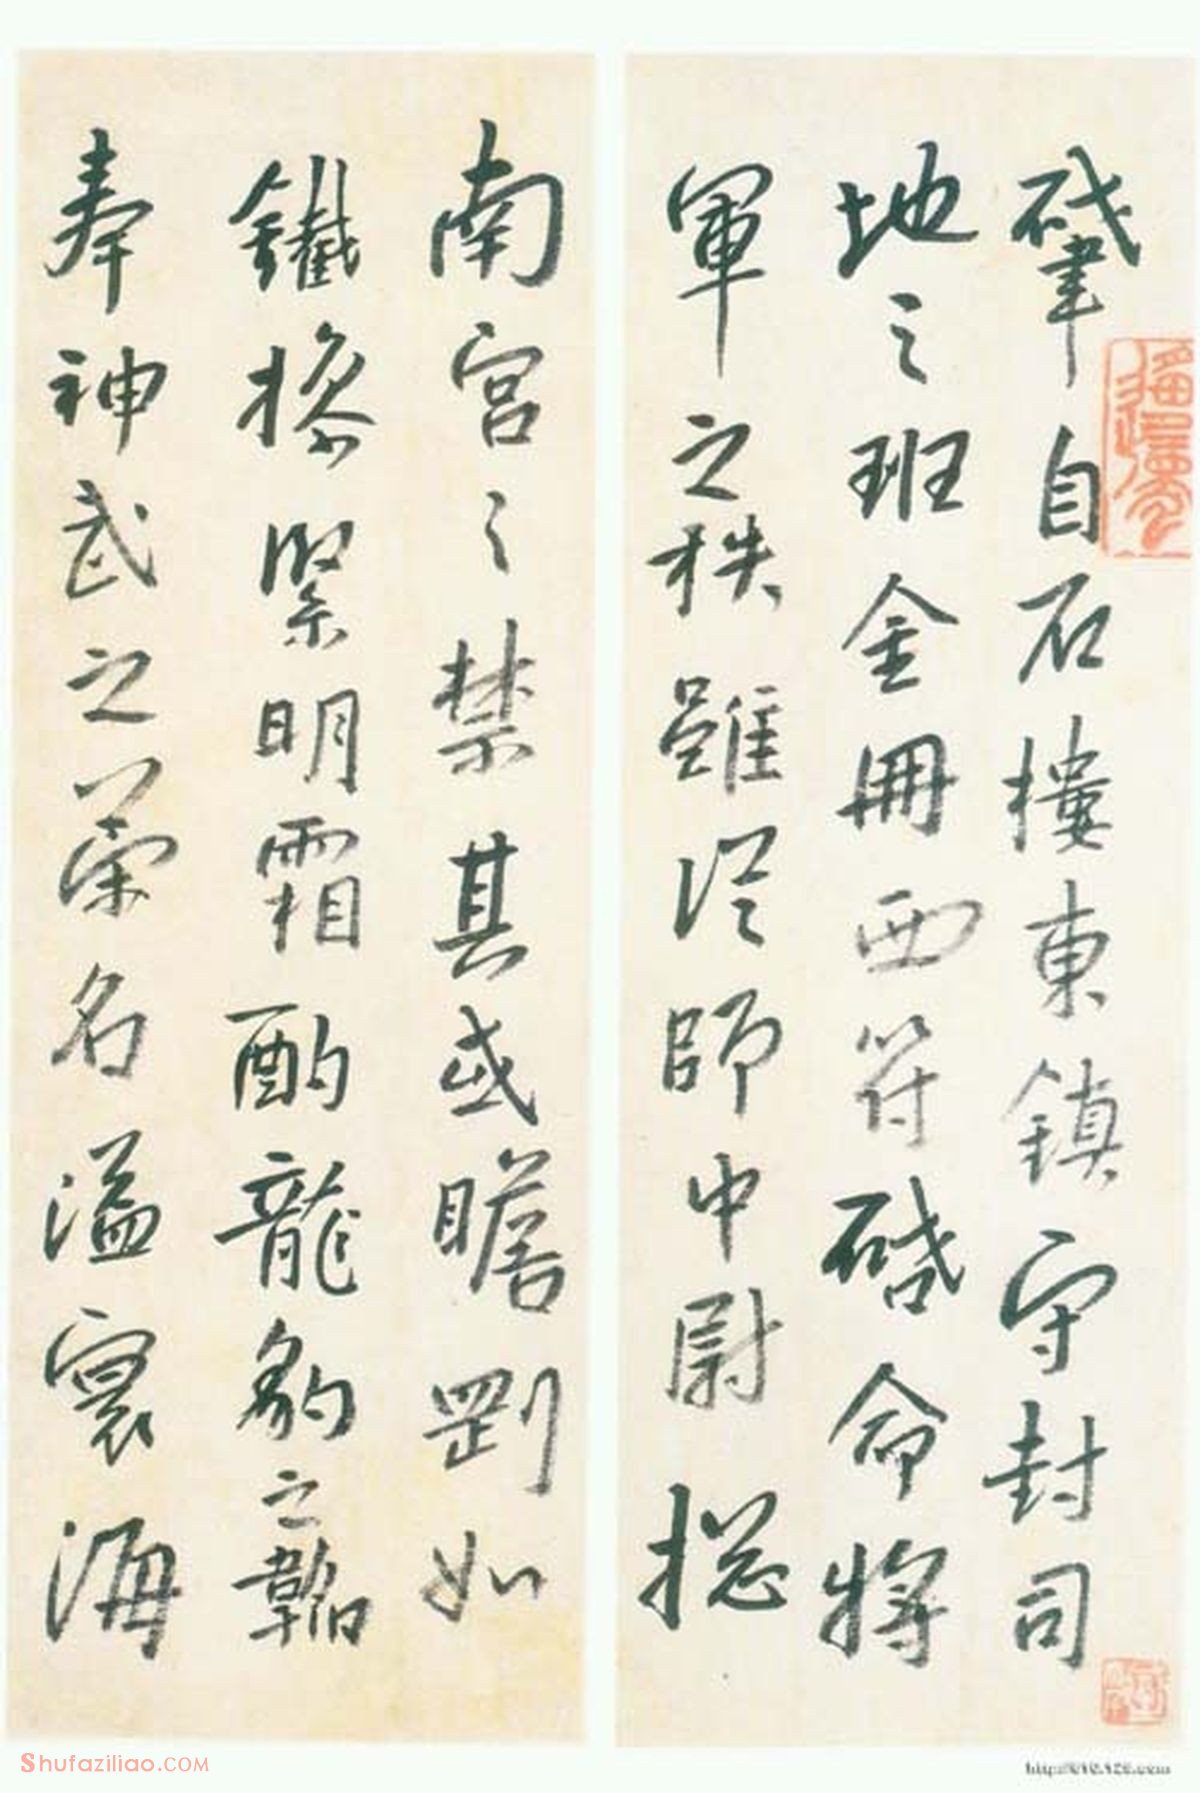 肇自石樓東鎮守封司
地之班金冊西符啓命將
軍之秩雖從師中尉總
南宮之禁其或瞻剛如
鐵操緊明霜酌龍豹之韜
奉神武之榮名溢寰海
Shufaziliao.COM